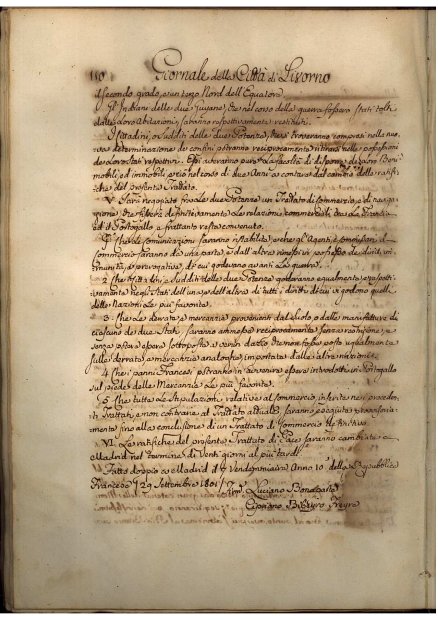 110 Giornale della Città di Livorno
il secondo grado, e un terzo Nord dell'Equatore.
Gl'Indiani delle due Guyane, che nel corso della guerra fossero stati tolti
dalle loro Abitazioni, saranno rispettivamente restituiti.
I Cittadini, o Sudditi delle due Potenze, che si troveranno compresi nella nuo,
va determinazione de' confini potranno reciprocamente ritirarsi nelle possessioni
de loro Stati rispettivi. Essi averanno pure la facoltà di disporre de loro Beni
mobili, ed immobili, e ciò nel corso di due Anni a contare dal cambio delle ratifi,
che del presente Trattato.
V. Sarà negoziato fra le due Potenze un Trattato di Commercio, e di naviga,
zione, che fisserà definitivamente le relazioni commerciali tra la Francia,
ed il Portogallo, e frattanto resta convenuto.
1. Che le comunicazioni saranno ristabilite, e che gl'Agenti, e Commissari di
Commercio saranno da una parte, e dall'altra rimessi in possesso de diritti, im,
munità, e prerogative, di cui godevano avanti la guerra.
2. Che i Cittadini, e Sudditi delle due Potenze goderanno egualmente, e rispet,
tivamente negli Stati dell'una, e dell'altra di tutti i diritti, di cui vi godono quelli
delle Nazioni le più favorite.
3. Che le derrate, e mercanzie provenienti dal suolo, o dalle manifatture di
ciascuno de due Stati saranno ammesse reciprocamente senza restrizione, e
senza poter essere sottoposte a verun dazio, che non fosse posto egualmente
sulle derrate, e mercanzie analoghe, importate dalle altre nazioni.
4. Che i panni Francesi potranno in avvenire essere introdotti in Portogallo
sul piede delle Mercanzie le più favorite.
5. Che tutte le Stipulazioni relative al Commercio inserite nei precedenti
Trattati, e non contrarie al Trattato attuale saranno eseguite provvisoria,
mente fino alla conclusione di un Trattato di Commercio definitivo.
VI. Le ratifiche del presente Trattato di Pace saranno cambiate a
Madrid nel termine di Venti giorni al più tardi.
Fatto doppio a Madrid il 7 Vendemmiaire Anno 10 della Repubblica
Francese / 29 Settembre 1801/
Luciano Bonaparte
Cipriano Bibeyro Freyre